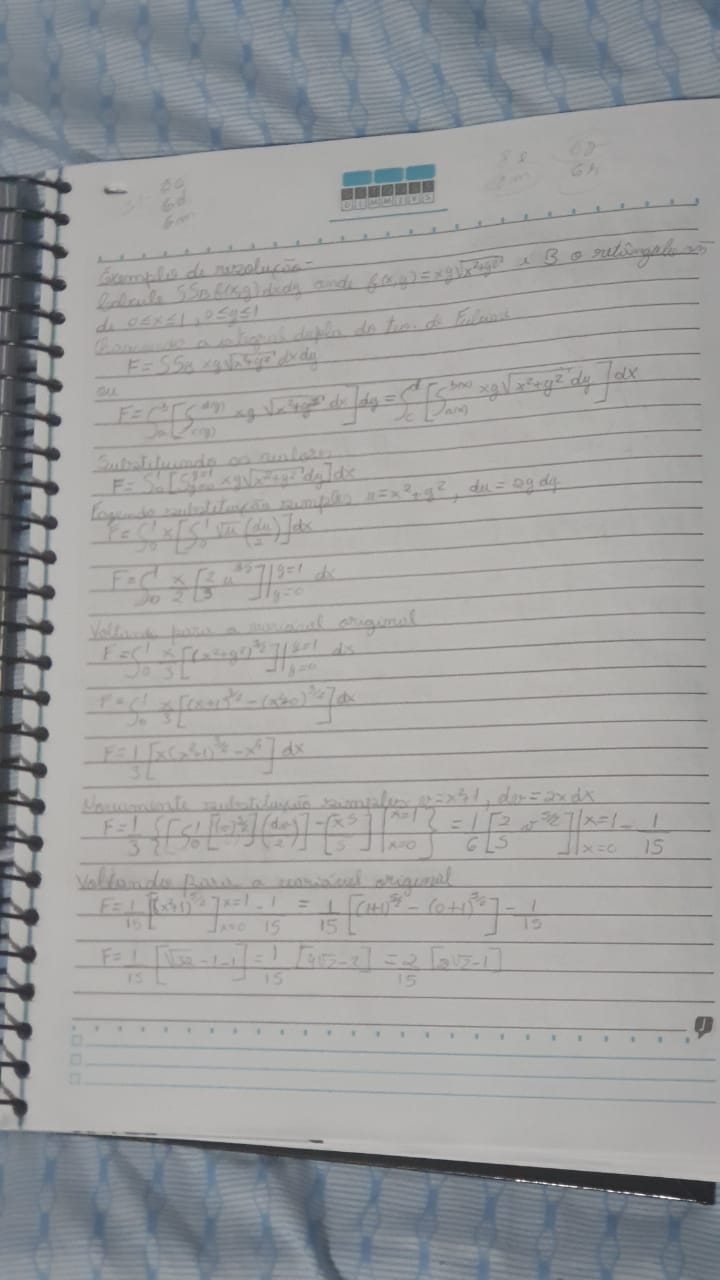 6a
6d
6m
DIMMIVS
6d
6h
Exemplo de resolução -
Calcule SSB f(x,y) dxdy onde f(x,y) = xy√x²+y² e B o retângulo
de 0≤x≤1, 0≤y≤1
Chamando a integral dupla do teo. de Fubini
F = SSB xy√x²+y² dxdy
ou
F = ∫ [∫ xy √x²+y² dx] dy = ∫ [∫ xy√x²+y² dy] dx
Substituindo os valores
F = ∫₀¹ [∫ xy√x²+y² dy] dx
Fazendo substituição simples u = x²+y², du = 2y dy
F = ∫₀¹ x [∫₀¹ √u (du/2)] dx
F = ∫₀¹ x/2 [2/3 u^3/2] |y=1 y=0 dx
Voltando para a variável original
F = ∫₀¹ x/3 [(x²+y²)^3/2] |y=1 y=0 dx
F = ∫₀¹ x/3 [(x+1)^3/2 - (x²+0)^3/2] dx
F = 1/3 [x(x²+1)^3/2 - x⁴] dx
Novamente substituição simples v = x²+1, dv = 2x dx
F = 1/3 {[∫₀¹ [(v)^3/2] (dv/2)] - [x5/5] |x=1 x=0} = 1/6 [2/5 v^5/2] |x=1 x=0 - 1/15
Voltando para a variável original
F = 1/15 [(x²+1)^5/2] x=1 x=0 - 1/15 = 1/15 [(1+1)^5/2 - (0+1)^5/2] - 1/15
F = 1/15 [√32 - 1 - 1] = 1/15 [4√2 - 2] = 2/15 [2√2 - 1]